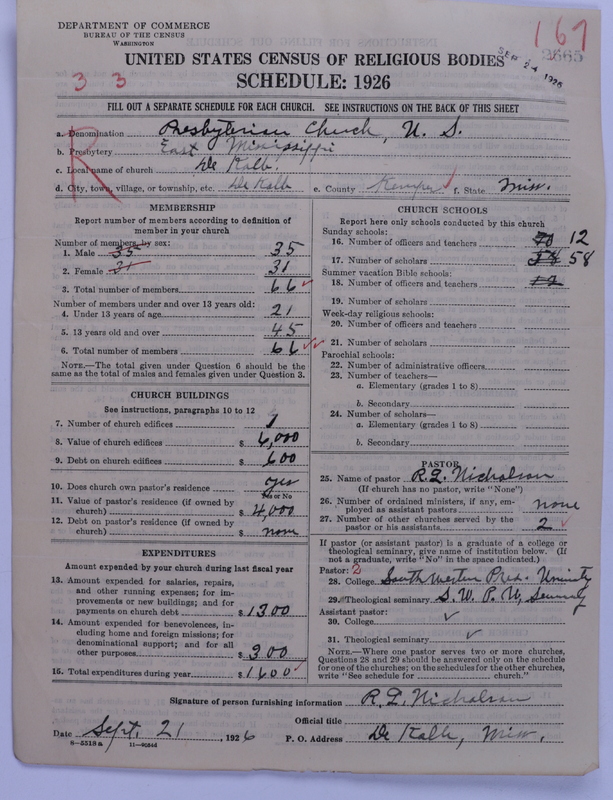 DEPARTMENT OF COMMERCE
BUREAU OF THE CENSUS
WASHINGTON
167
2665
SEP 24 1926
UNITED STATES CENSUS OF RELIGIOUS BODIES
3 3
SCHEDULE: 1926
FILL OUT A SEPARATE SCHEDULE FOR EACH CHURCH. SEE INSTRUCTIONS ON THE BACK OF THIS SHEET
R
a. Denomination Presbyterian Church, U. S.
b. Presbytery East Mississippi
c. Local name of church De Kalb.
d. City, town, village, or township, etc. De Kalb e. County Kemper f. State Miss.
MEMBERSHIP
Report number of members according to definition of member in your church
Number of members, by sex:
1. Male 35 35
2. Female 31 31
3. Total number of members 66
Number of members under and over 13 years old:
4. Under 13 years of age 21
5. 13 years old and over 45
6. Total number of members 66
NOTE.—The total given under Question 6 should be the same as the total of males and females given under Question 3.
CHURCH BUILDINGS
See instructions, paragraphs 10 to 12
7. Number of church edifices 1
8. Value of church edifices $ 6,000
9. Debt on church edifices $ 600
10. Does church own pastor's residence yes
Yes or No
11. Value of pastor's residence (if owned by church) $ 4,000
12. Debt on pastor's residence (if owned by church) $ none
EXPENDITURES
Amount expended by your church during last fiscal year
13. Amount expended for salaries, repairs, and other running expenses; for improvements or new buildings; and for payments on church debt $ 1300
14. Amount expended for benevolences, including home and foreign missions; for denominational support; and for all other purposes $ 300
15. Total expenditures during year $ 1600
CHURCH SCHOOLS
Report here only schools conducted by this church
Sunday schools:
16. Number of officers and teachers 12
17. Number of scholars 58
Summer vacation Bible schools:
18. Number of officers and teachers
19. Number of scholars
Week-day religious schools:
20. Number of officers and teachers
21. Number of scholars
Parochial schools:
22. Number of administrative officers
23. Number of teachers—
a. Elementary (grades 1 to 8)
b. Secondary
24. Number of scholars—
a. Elementary (grades 1 to 8)
b. Secondary
PASTOR
25. Name of pastor R. L. Nicholson
(If church has no pastor, write "None")
26. Number of ordained ministers, if any, employed as assistant pastors none
27. Number of other churches served by the pastor or his assistants 2
If pastor (or assistant pastor) is a graduate of a college or theological seminary, give name of institution below. (If not a graduate, write "No" in the space indicated.)
Pastor: 2
28. College South Western Pres. University
29. Theological seminary S. W. P. U. Seminary
Assistant pastor:
30. College
31. Theological seminary
NOTE.—Where one pastor serves two or more churches, Questions 28 and 29 should be answered only on the schedule for one of the churches; on the schedules for the other churches, write "See schedule for church."
Signature of person furnishing information R. L. Nicholson
Official title
Date Sept. 21, 1926 P. O. Address De Kalb, Miss.
8—5518a 11—9084d